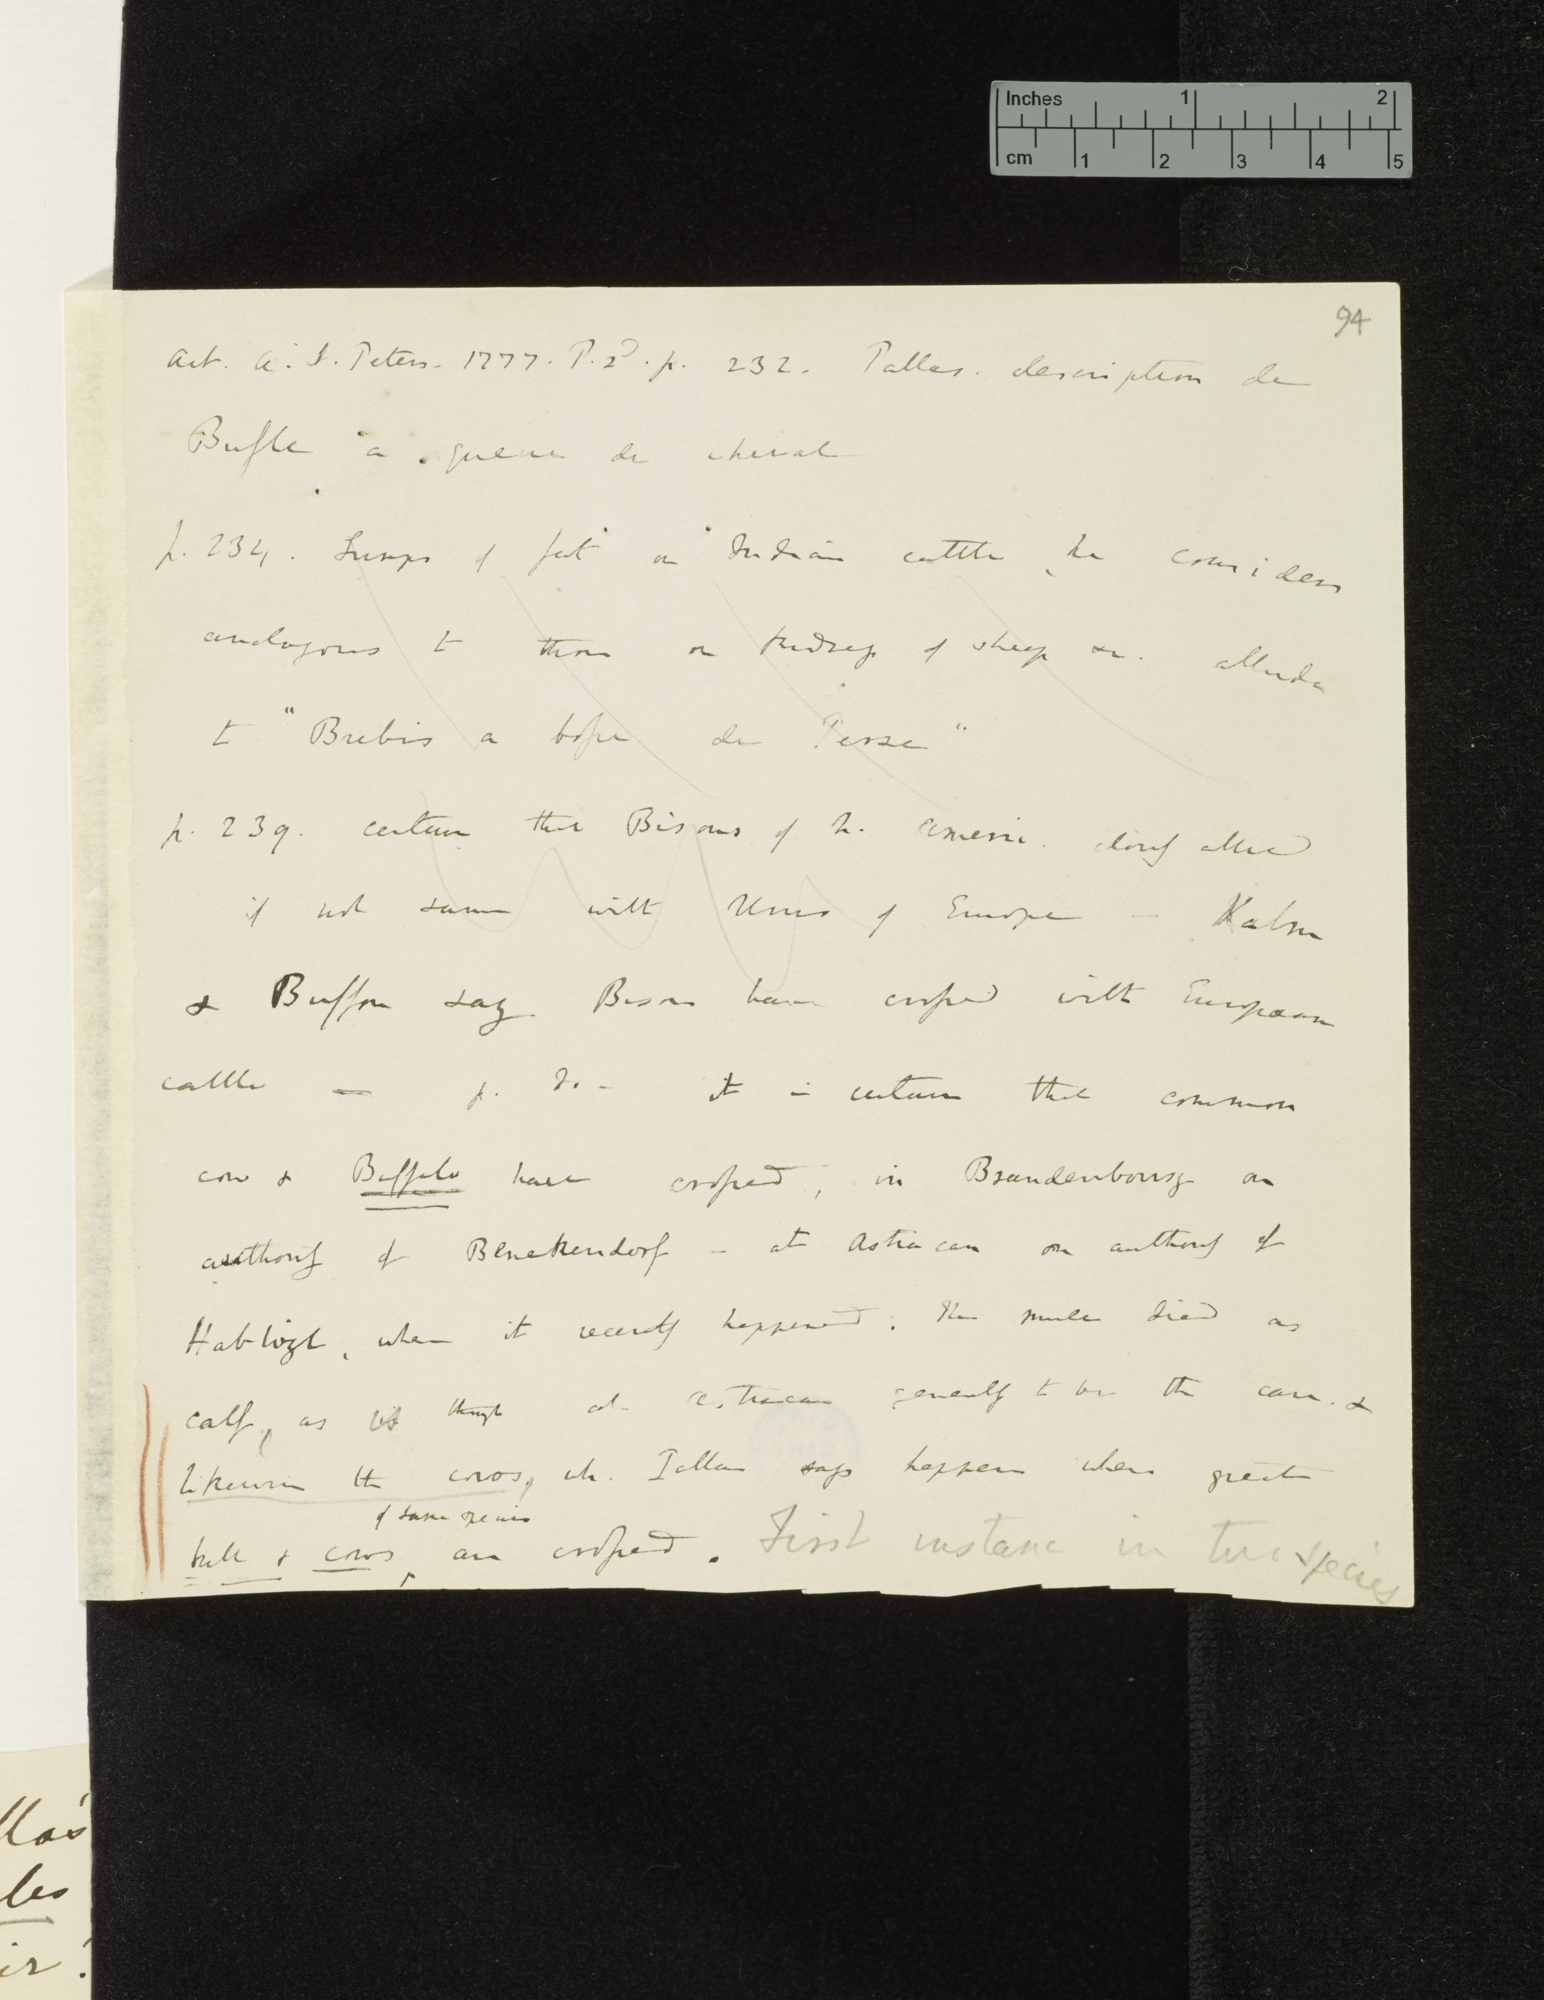 Inches 1 2
cm 1 2 3 4 5
94
Act. A. S. Peters. 1777. P. 2d. p. 232. Pallas. description de
Bufle a queue de cheval
p. 234. Lumps of fat on Indian cattle, he considers
analogous to those on rudrep of sheep &c. alludes
to "Brebis a bosse de Perse"
p. 239. certain that Bisons of N. Americ. closely allied
if not same with Urus of Europe — Kalm
& Buffon say Bisons have crossed with European
cattle — p. do. - it is certain that common
cow & Buffalo have crossed, in Brandenbourg on
authority of Benekendorf — at Astracan on authority of
Hablizl, where it recently happened. The mule died as
calf, as is though at Astracan generally to be the case. &
likewise the cows, wh. Pallas says happens when great
of same species
bull & cows are crossed. First instance in two species
llas
les
ir!